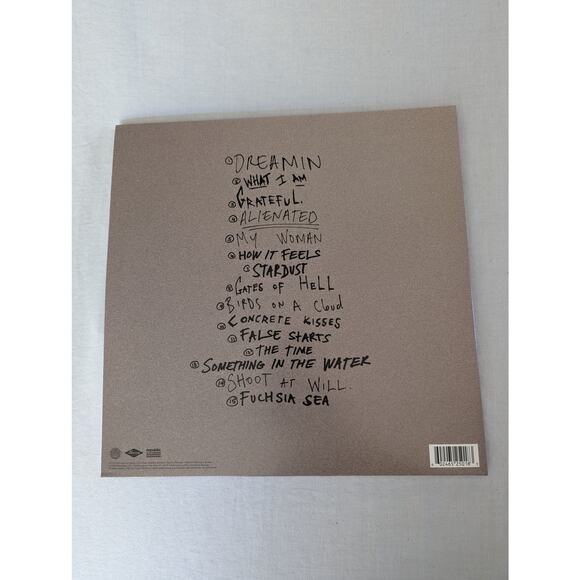 1 DREAMIN
2 WHAT I AM
3 GRATEFUL.
4 ALIENATED
5 MY WOMAN
6 HOW IT FEELS
7 STARDUST
8 GATES OF HELL
9 BIRDS ON A CLOUD
10 CONCRETE KISSES
11 FALSE STARTS
12 THE TIME
13 SOMETHING IN THE WATER
14 SHOOT AT WILL.
15 FUCHSIA SEA